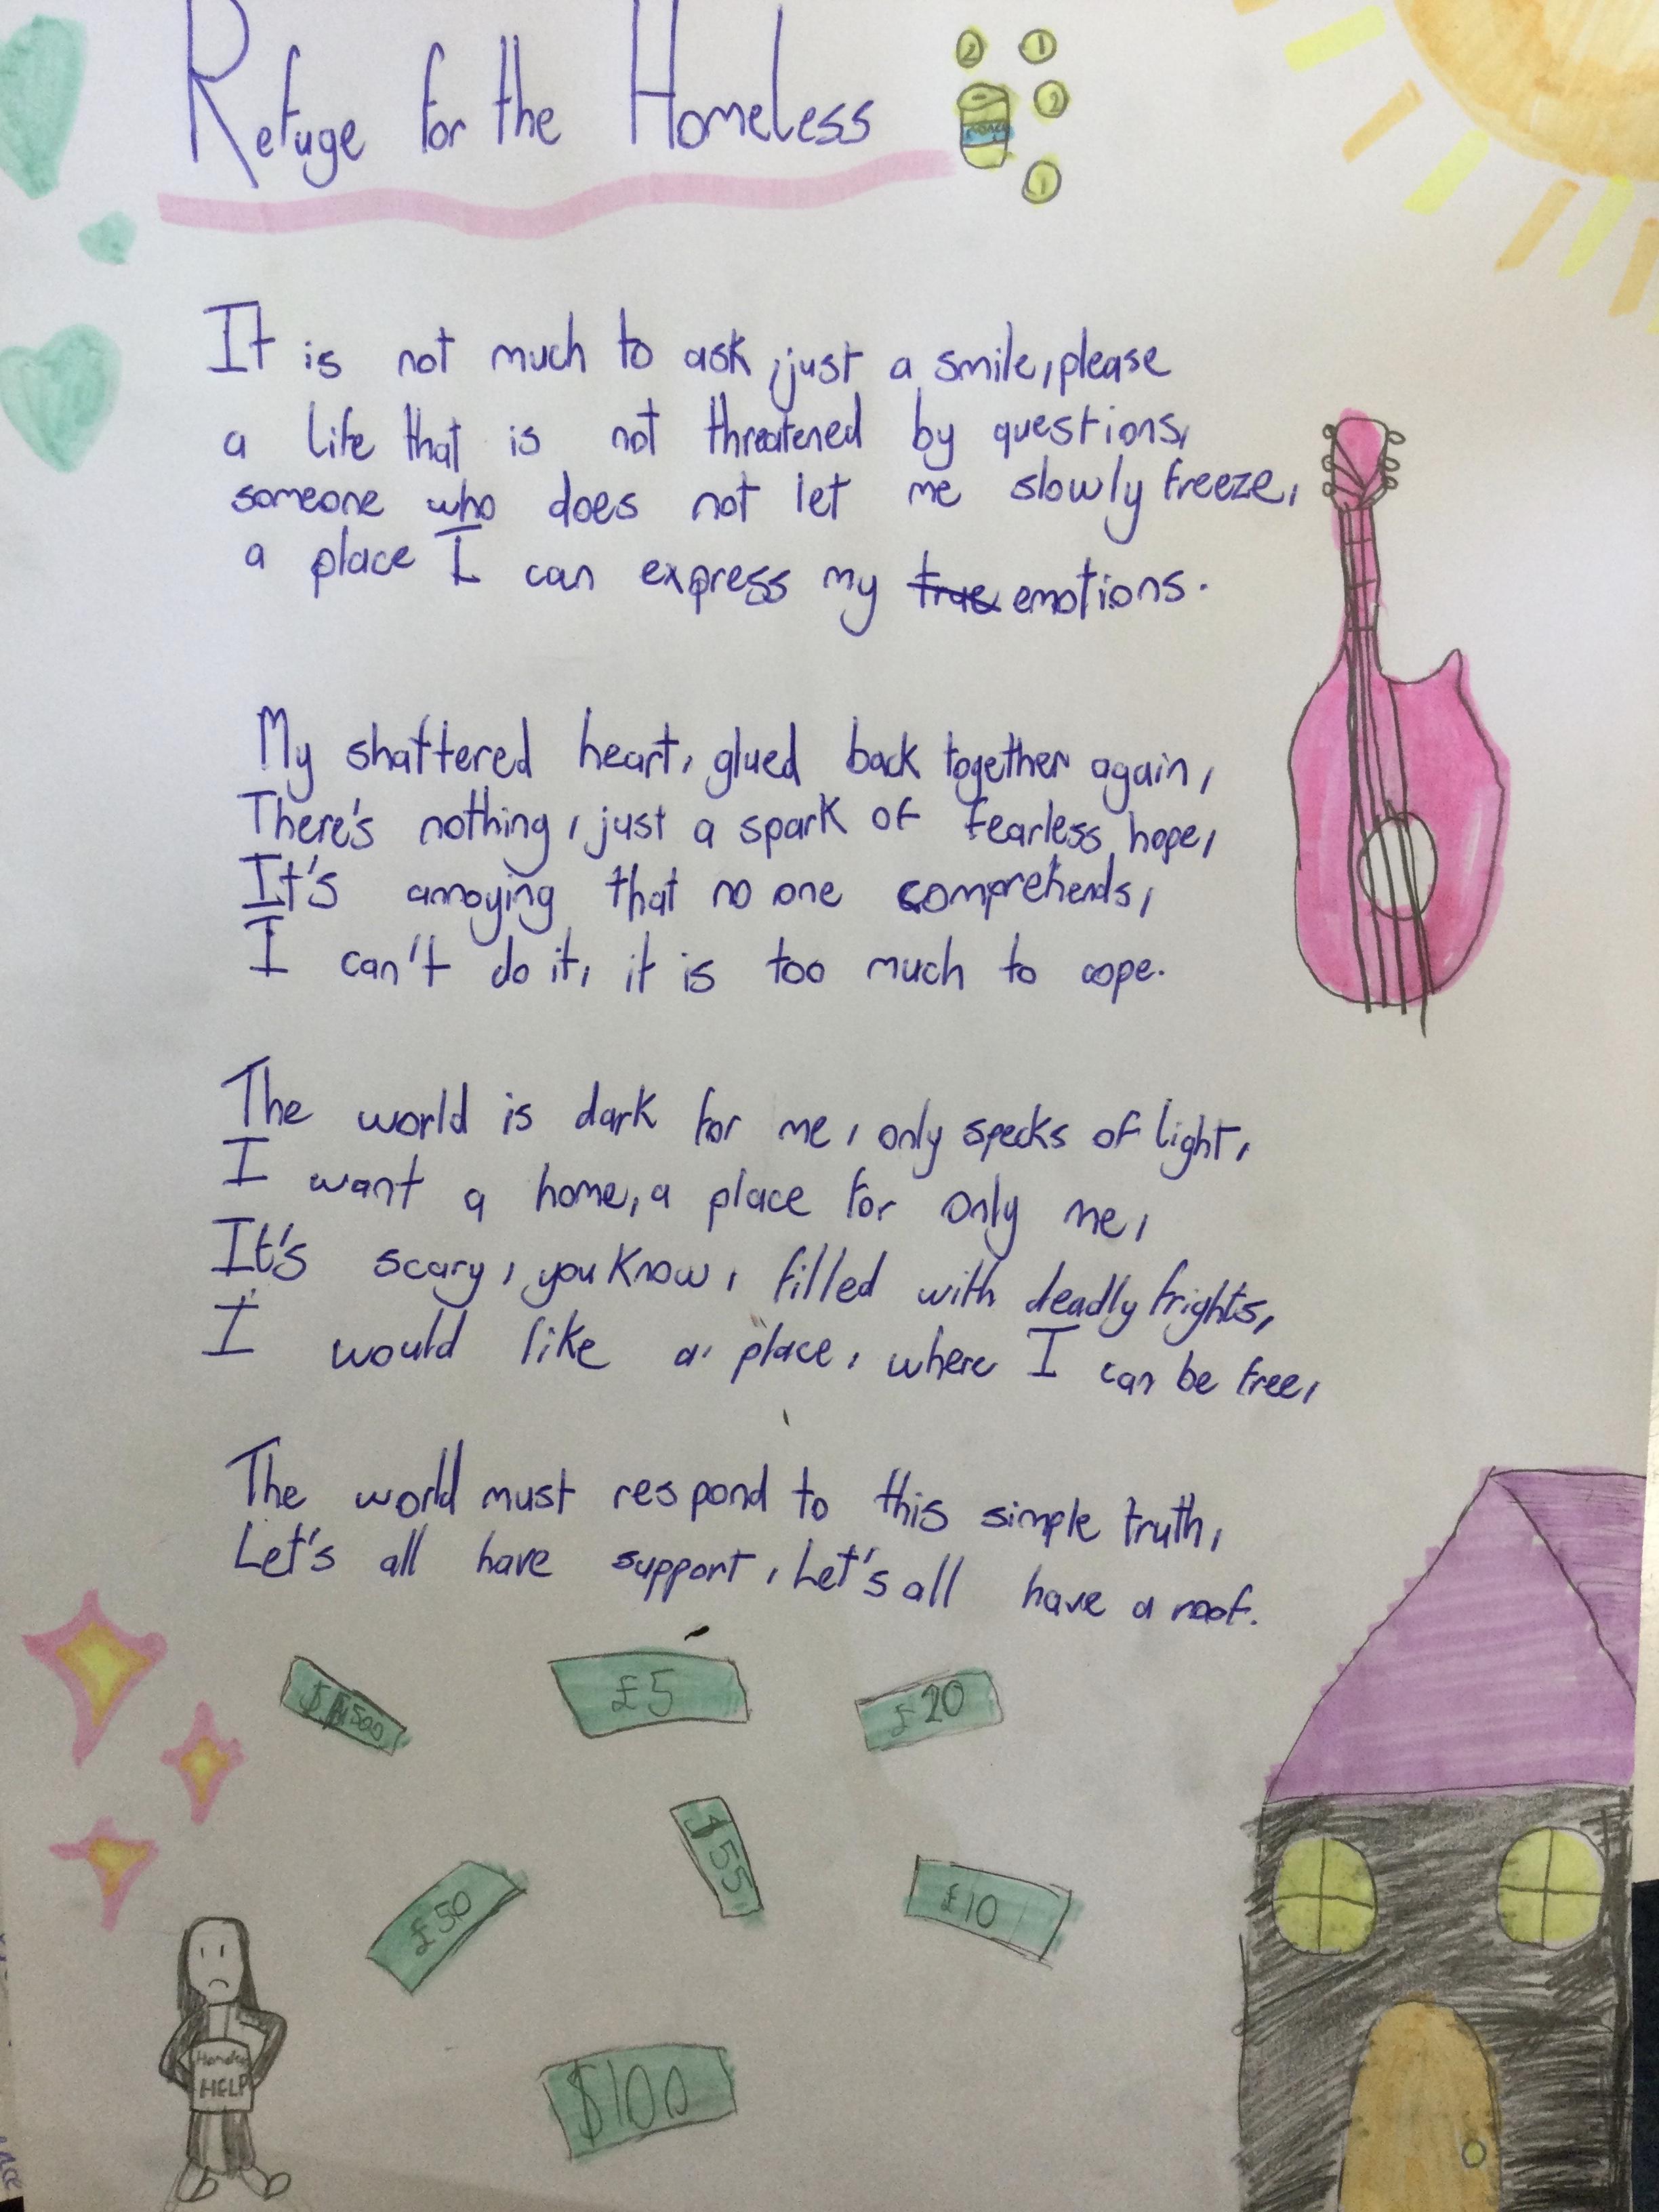 Refuge for the Homeless
2
1
2
1
It is not much to ask, just a smile, please
a life that is not threatened by questions,
someone who does not let me slowly freeze,
a place I can express my true emotions.
My shattered heart, glued back together again,
There's nothing, just a spark of fearless hope,
It's annoying that no one comprehends,
I can't do it, it is too much to cope.
The world is dark for me, only specks of light,
I want a home, a place for only me,
It's scary, you know, filled with deadly frights,
I would like a place, where I can be free,
The world must respond to this simple truth,
Let's all have support, Let's all have a roof.
£5
£20
$55
£50
£10
HELP
$100